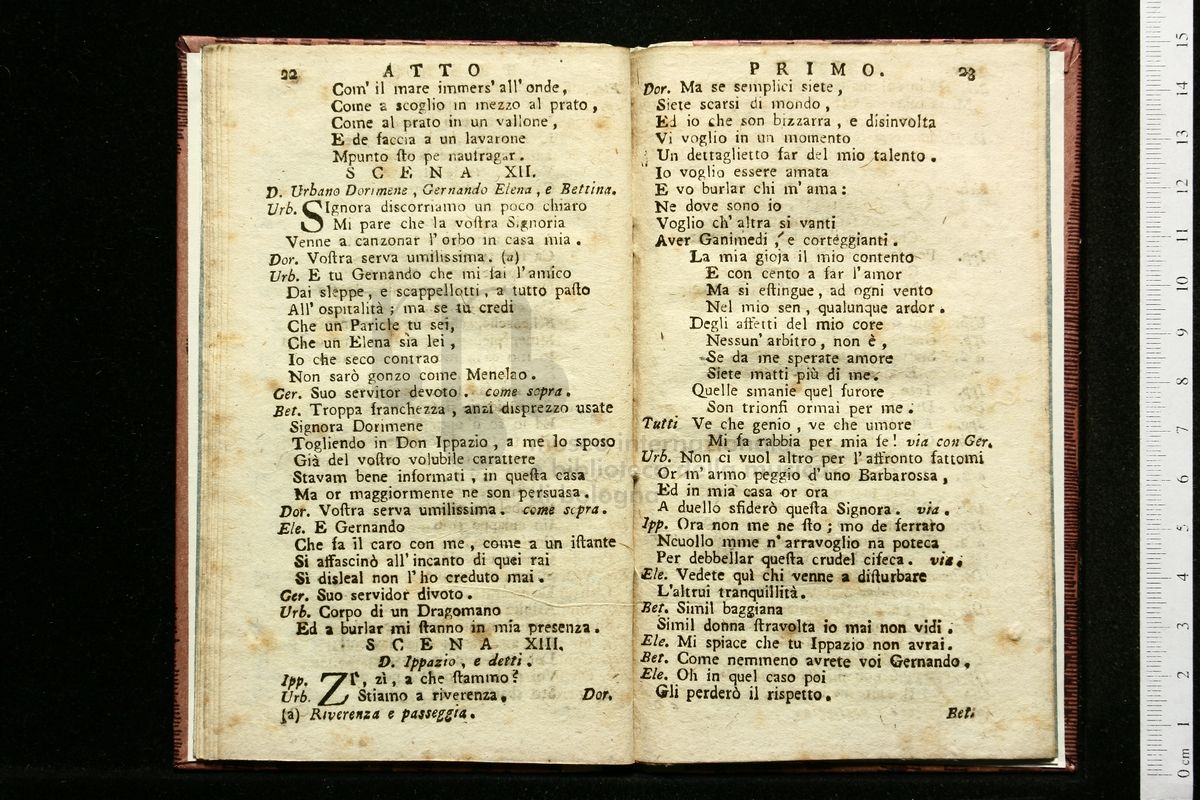 22 ATTO
Com' il mare immers' all' onde,
Come a scoglio in mezzo al prato,
Come al prato in un vallone,
E de faccia a un lavarone
Mpunto sto pe naufragar.
SCENA XII.
D. Urbano Dorimene, Gernando Elena, e Bettina.
Urb. SIgnora discorriamo un poco chiaro
Mi pare che la vostra Signoria
Venne a canzonar l'orbo in casa mia.
Dor. Vostra serva umilissima. (a)
Urb. E tu Gernando che mi fai l'amico
Dai sleppe, e scappellotti, a tutto pasto
All' ospitalità; ma se tu credi
Che un Paricle tu sei,
Che un Elena sia lei,
Io che seco contrao
Non sarò gonzo come Menelao.
Ger. Suo servitor devoto. come sopra.
Bet. Troppa franchezza, anzi disprezzo usate
Signora Dorimene
Togliendo in Don Ippazio, a me lo sposo
Già del vostro volubile carattere
Stavam bene informati, in questa casa
Ma or maggiormente ne son persuasa.
Dor. Vostra serva umilissima. come sopra.
Ele. E Gernando
Che fa il caro con me, come a un istante
Si affascinò all' incanto di quei rai
Sì disleal non l'ho creduto mai.
Ger. Suo servidor divoto.
Urb. Corpo di un Dragomano
Ed a burlar mi stanno in mia presenza.
SCENA XIII.
D. Ippazio, e detti.
Ipp. ZI', zì, a che stammo?
Urb. Stiamo a riverenza. Dor.
(a) Riverenza e passeggia.
PRIMO. 23
Dor. Ma se semplici siete,
Siete scarsi di mondo,
Ed io che son bizzarra, e disinvolta
Vi voglio in un momento
Un dettaglietto far del mio talento.
Io voglio essere amata
E vo burlar chi m'ama:
Ne dove sono io
Voglio ch'altra si vanti
Aver Ganimedi, e corteggianti.
La mia gioja il mio contento
E con cento a far l'amor
Ma si estingue, ad ogni vento
Nel mio sen, qualunque ardor.
Degli affetti del mio core
Nessun' arbitro, non è,
Se da me sperate amore
Siete matti più di me.
Quelle smanie quel furore
Son trionfi ormai per me.
Tutti Ve che genio, ve che umore
Mi fa rabbia per mia fe! via con Ger.
Urb. Non ci vuol altro per l'affronto fattomi
Or m'armo peggio d'uno Barbarossa,
Ed in mia casa or ora
A duello sfiderò questa Signora. via.
Ipp. Ora non me ne sto; mo de ferraro
Ncuollo mme n'arravoglio na poteca
Per debbellar questa crudel cifeca. via.
Ele. Vedete quì chi venne a disturbare
L'altrui tranquillità.
Bet. Simil baggiana
Simil donna stravolta io mai non vidi.
Ele. Mi spiace che tu Ippazio non avrai.
Bet. Come nemmeno avrete voi Gernando.
Ele. Oh in quel caso poi
Gli perderò il rispetto.
Bet.